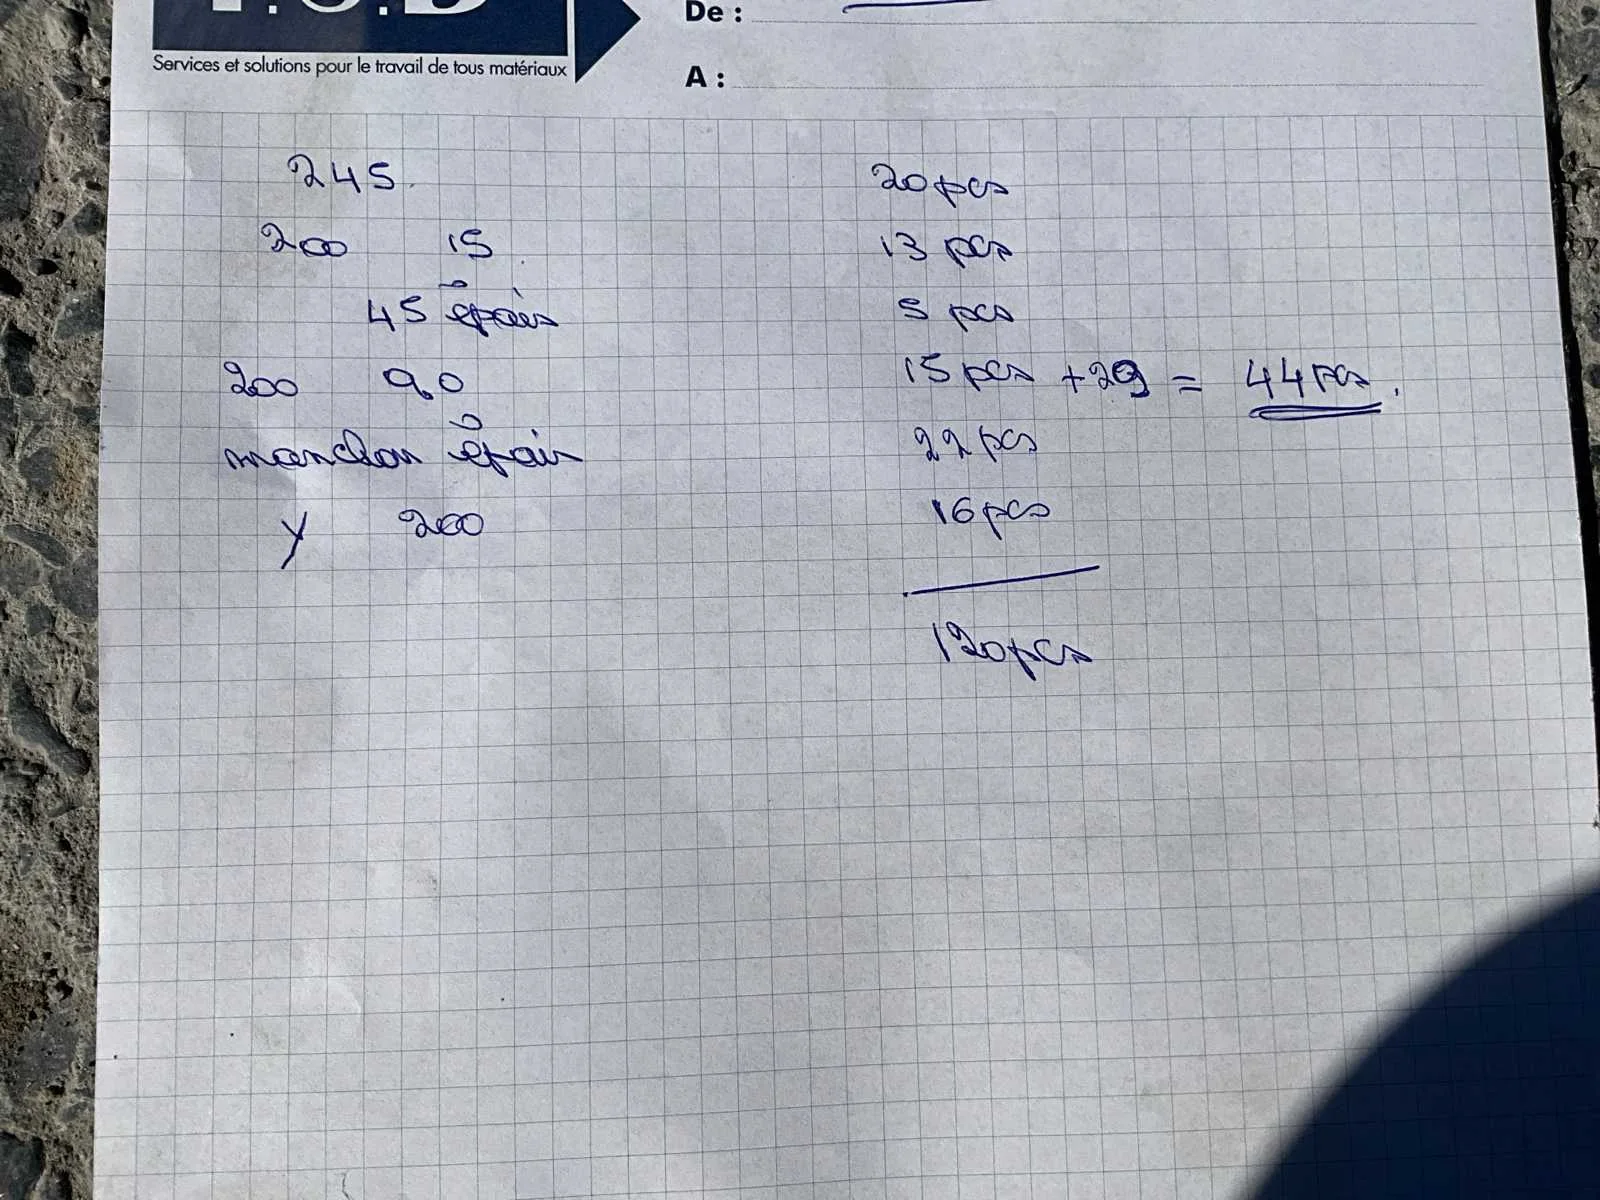 De :
Services et solutions pour le travail de tous matériaux
A :
245 20 pcs
200 15 13 pcs
45 épais 5 pcs
200 90 15 pcs + 29 = 44 pcs.
manchon épais 22 pcs
Y 200 16 pcs
120 pcs